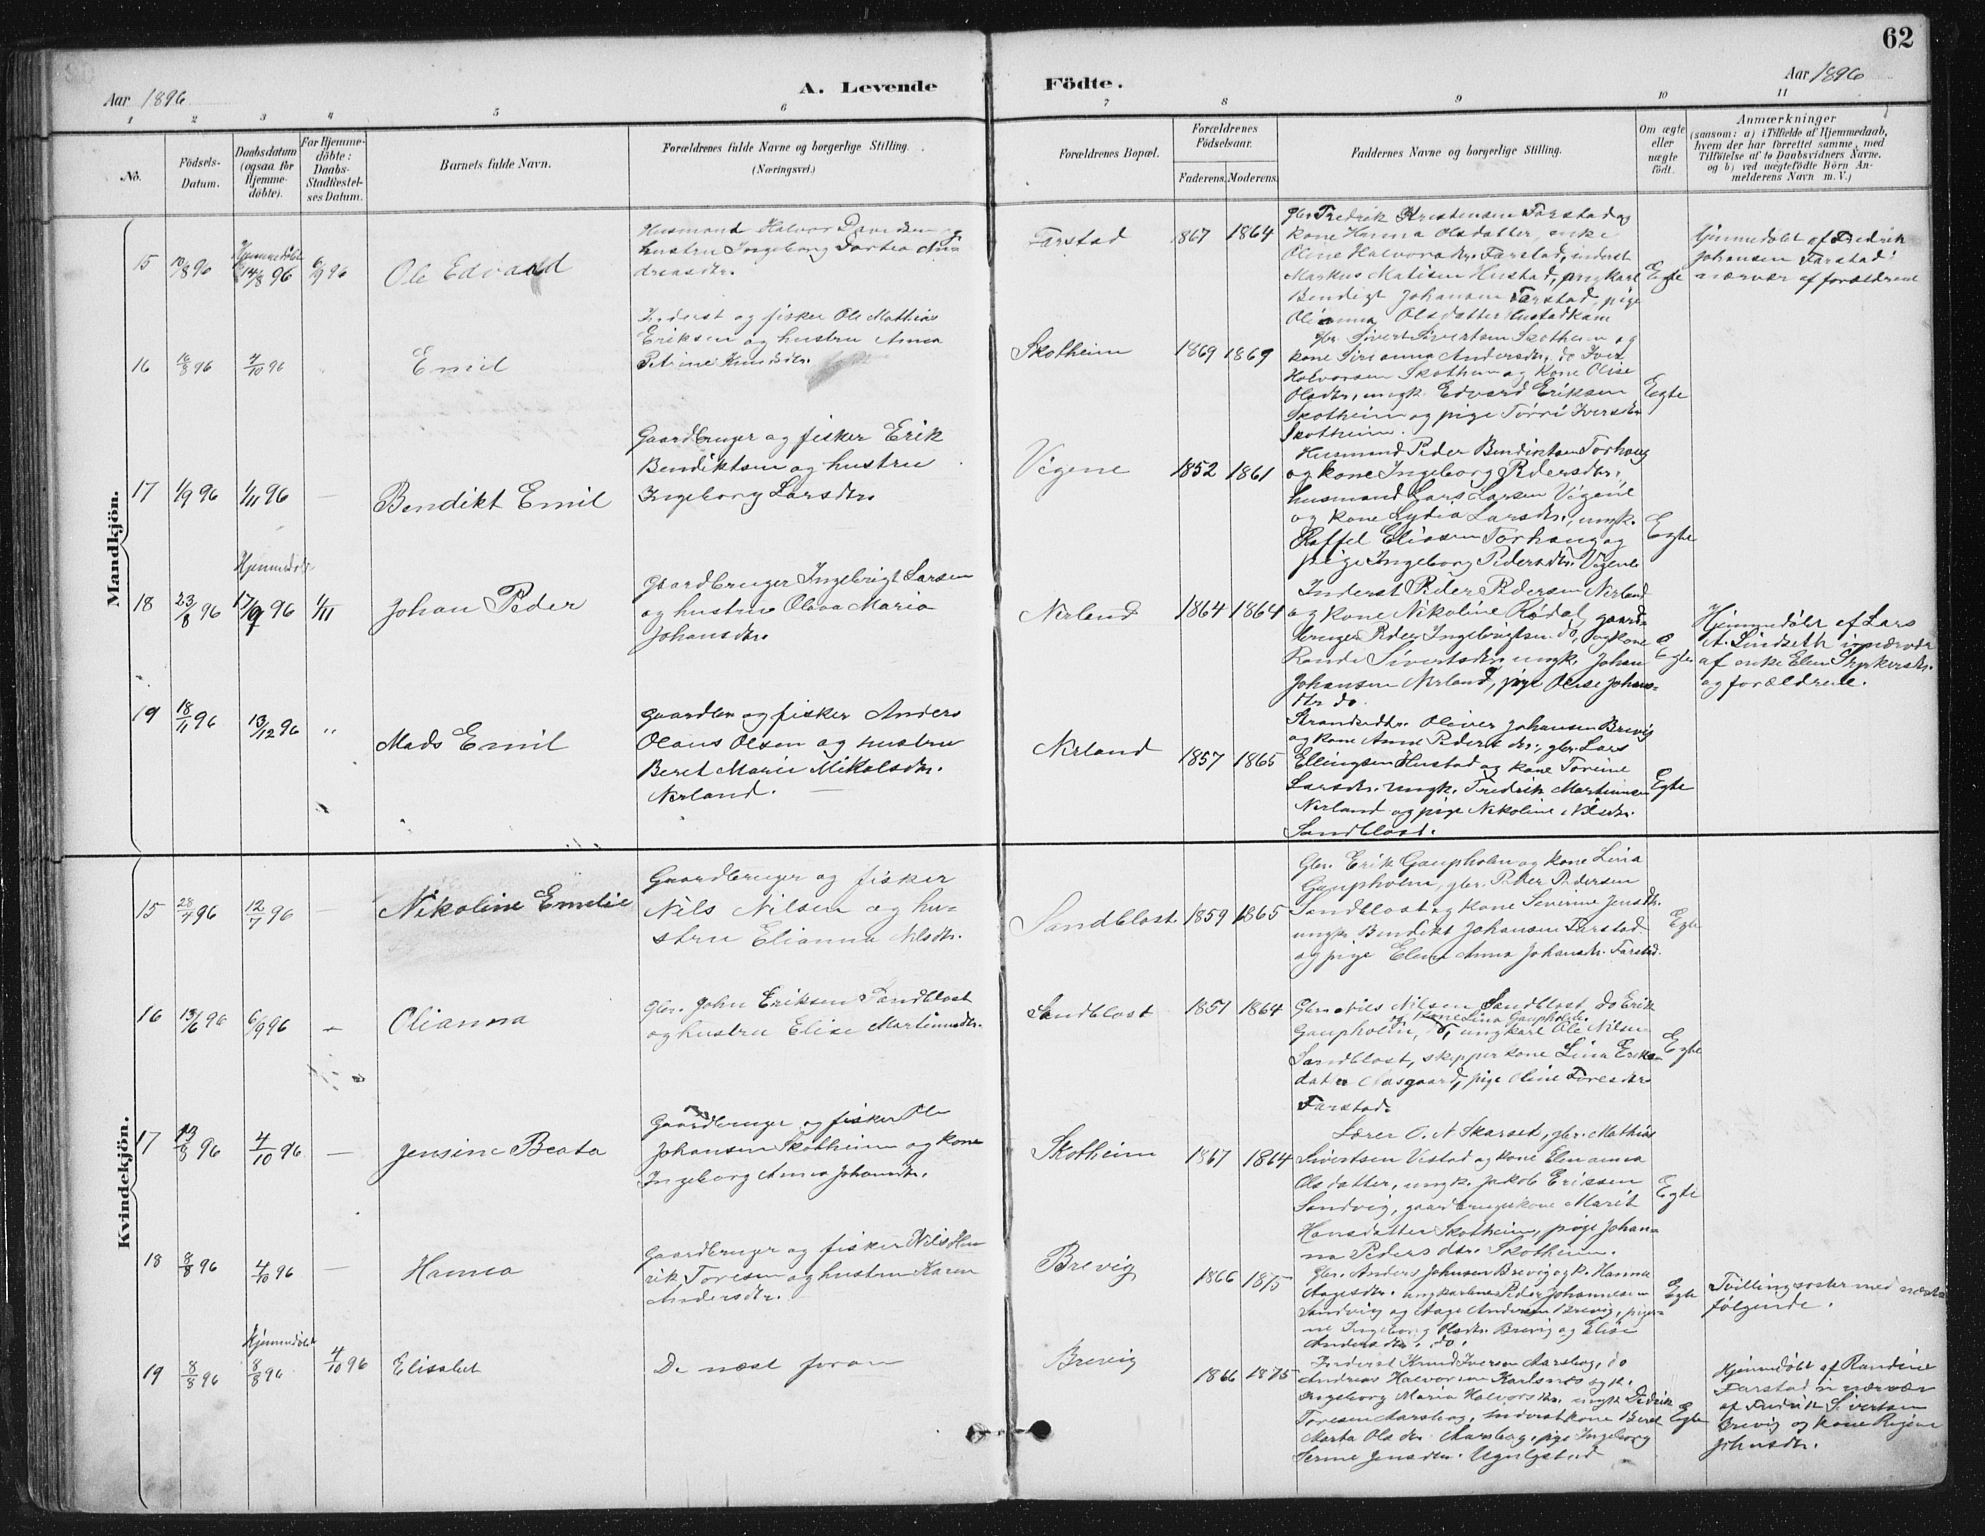 62
Aar 1896
A. Levende Födte.
Aar 1896
1 2 3 4 5 6 7 8 9 10 11
No.
Födsels-Datum.
Daabsdatum (ogsaa for Hjemme-döbte).
For Hjemme-döbte: Daabs-Stadfæstel-ses Datum.
Barnets fulde Navn.
Forældrenes fulde Navne og borgerlige Stilling. (Næringsvei.)
Forældrenes Bopæl.
Forældrenes Födselsaar.
Faderens. Moderens.
Faddernes Navne og borgerlige Stilling.
Om ægte eller uægte födt.
Anmærkninger
(saasom: a) i Tilfælde af Hjemmedaab,
hvem der har forrettet samme, med
Tilföielse af to Daabsvidners Navne,
og b) ved uægtefödte Börn An-
melderens Navn m. V.)
Mandkjön.
15 10/8 96 Hjemmedöbt 14/8 96 6/9 96
Ole Edvard
Husmand Halvor Davidsen og
hustru Ingeborg Dortea An-
dreasdtr.
Farstad
1867 1864
gbr. Fredrik Kristensen Farstad og
kone Hanna Olsdatter, enke
Oline Halvorsdtr. Farstad, inderst
Markus Matisen Hustad, ungkarl
Bendigt Johansen Farstad, pige
Olianna Olsdatter Hustadkam
Egte
hjemmedöbt af Fredrik
Johansen Farstad i
nærvær af forældrene
16 16/8 96 4/10 96
Emil
Inderst og fisker Ole Mathias
Eriksen og hustru Anna
Petrine Knudsdtr.
Skotheim
1869 1869
gbr. Sivert Sivertsen Skotheim og
kone Sirianna Andersdtr. do Iver
Halvorsen Skotheim og kone Olise
Olsdtr., ungk. Edvard Eriksen
Skotheim og pige Torri Iversdtr.
Skotheim.
Egte
17 1/9 96 1/11 96 —
Bendikt Emil
Gaardbruger og fisker Erik
Bendiktsen og hustru
Ingeborg Larsdtr.
Vigene
1852 1861
Husmand Peder Bendiktsen Torhaug
og kone Ingeborg Pedersdtr.,
husmand Lars Larsen Vigene
og kone Lydia Larsdtr., ungk.
Staffel Eliasen Torhaug og
pige Ingeborg Pedersdtr. Vigene
Egte
18 23/8 96 Hjemmedöbt 17/9 96 1/11
Johan Peder
Gaardbruger Ingebrigt Larsen
og hustru Olava Maria
Johansdtr.
Nerland
1864 1864
Inderst Peder Pedersen Nerland
og kone Nikoline Rödal, gaard-
bruger Peder Ingebrigtsen do, og kone
Randi Sivertsdtr. ungk. Johan
Johansen Nerland, pige Olise Johans-
dtr. do.
Egte
Hjemmedöbt af Lars
A. Lindseth i nærvær
af enke Elen
og forældrene.
19 18/11 96 13/12 96 "
Mads Emil
Gaardbr. og fisker Anders
Olaus Olsen og hustru
Beret Marie Mikalsdtr.
Nerland.
Nerland
1857 1865
Oliver Johansen Brevig
og kone Anne Pedersdtr., gbr. Lars
Ellingsen Hustad og kone Torine
Larsdtr. ungk. Fredrik Martinusen
Nerland og pige Nikoline Nilsdtr.
Sandblost.
Egte
Kvindekjön.
15 28/4 96 12/7 96 —
Nikoline Emelie
Gaardbruger og fisker
Nils Nilsen og hu-
stru Elianna Nilsdtr.
Sandblost
1859 1865
Gbr. Erik Gaupholm og kone Lina
Gaupholm, gbr. Peder Pedersen
Sandblost og kone Severine Jensdtr.
ungk. Bendikt Johansen Farstad
og pige Elen Anna Johansdtr. Farstad.
Egte
16 13/6 96 6/9 96 —
Olianna
Gbr. John Eriksen Sandblost
og hustru Elise Martinusdtr.
Sandblost
1851 1864
Gbr. Nils Nilsen Sandblost, do Erik
og kone Lina Gaupholm.
Gaupholm, ungkarl Ole Nilsen
Sandblost, skipperkone Lina Eriks-
datter Aasgaard, pige Oline Toresdtr.
Farstad.
Egte
17 13/8 96 4/10 96 —
Jensine Beata
Gaardbruger og fisker Ole
Johansen Skotheim og kone
Ingeborg Anna Johansdtr.
Skotheim
1867 1864
Lærer O. A Skarset, gbr. Mathias
Sivertsen Vestad og kone Elenanna
Olsdatter, ungk. Jakob Eriksen
Sandvig, gaardbrugerkone Marit
Hansdatter Skotheim, pige Johan-
na Pedersdtr. Skotheim.
Egte
18 8/8 96 4/10 96 —
Hanna
Gaardbruger og fisker Nils Hen-
rik Toresen og hustru Karen
Andersdtr.
Brevig
1866 1875
Gbr. Anders Johnsen Brevig og k. Hanna
Aagesdtr. ungkarlene Peder Johannesen
Sandvig og Aage Andersen Brevig, piger-
ne Ingeborg Olsdtr. Brevig og Elise
Andersdtr. do.
Egte
Tvillingsöster med næst-
fölgende.
19 8/8 96 Hjemmedöbt 8/8 96 4/10 96
Elisabet
De næst foran
Brevig
1866 1875
Inderst Knud Iversen Aarsbog, do
Andreas Halvorsen Karlsnes og k.
Ingeborg Maria Halvorsdtr. ungk. Didrik
Toresen Aarsbog, inderstkone Beret
Marta Olsdtr. Aarsbog, pige Ingeborg
Serine Jensdtr.
Egte
Hjemmedöbt af Randine
Farstad i nærvær
af Fredrik Sivertsen
Brevig og kone
Johnsdtr.